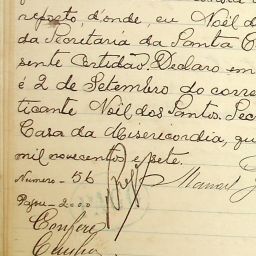 reposto, d'onde, eu Nöel d
da Secretaria da Santa C
sente Certidão. Declaro em
é 2 de Setembro do corre
ticante Nöel dos Santos. Sec
Casa da Misericordia, qu
mil novecentos e sete.
Numero - 56
Manoel J
Pagou - 2000
Confere
Cunha